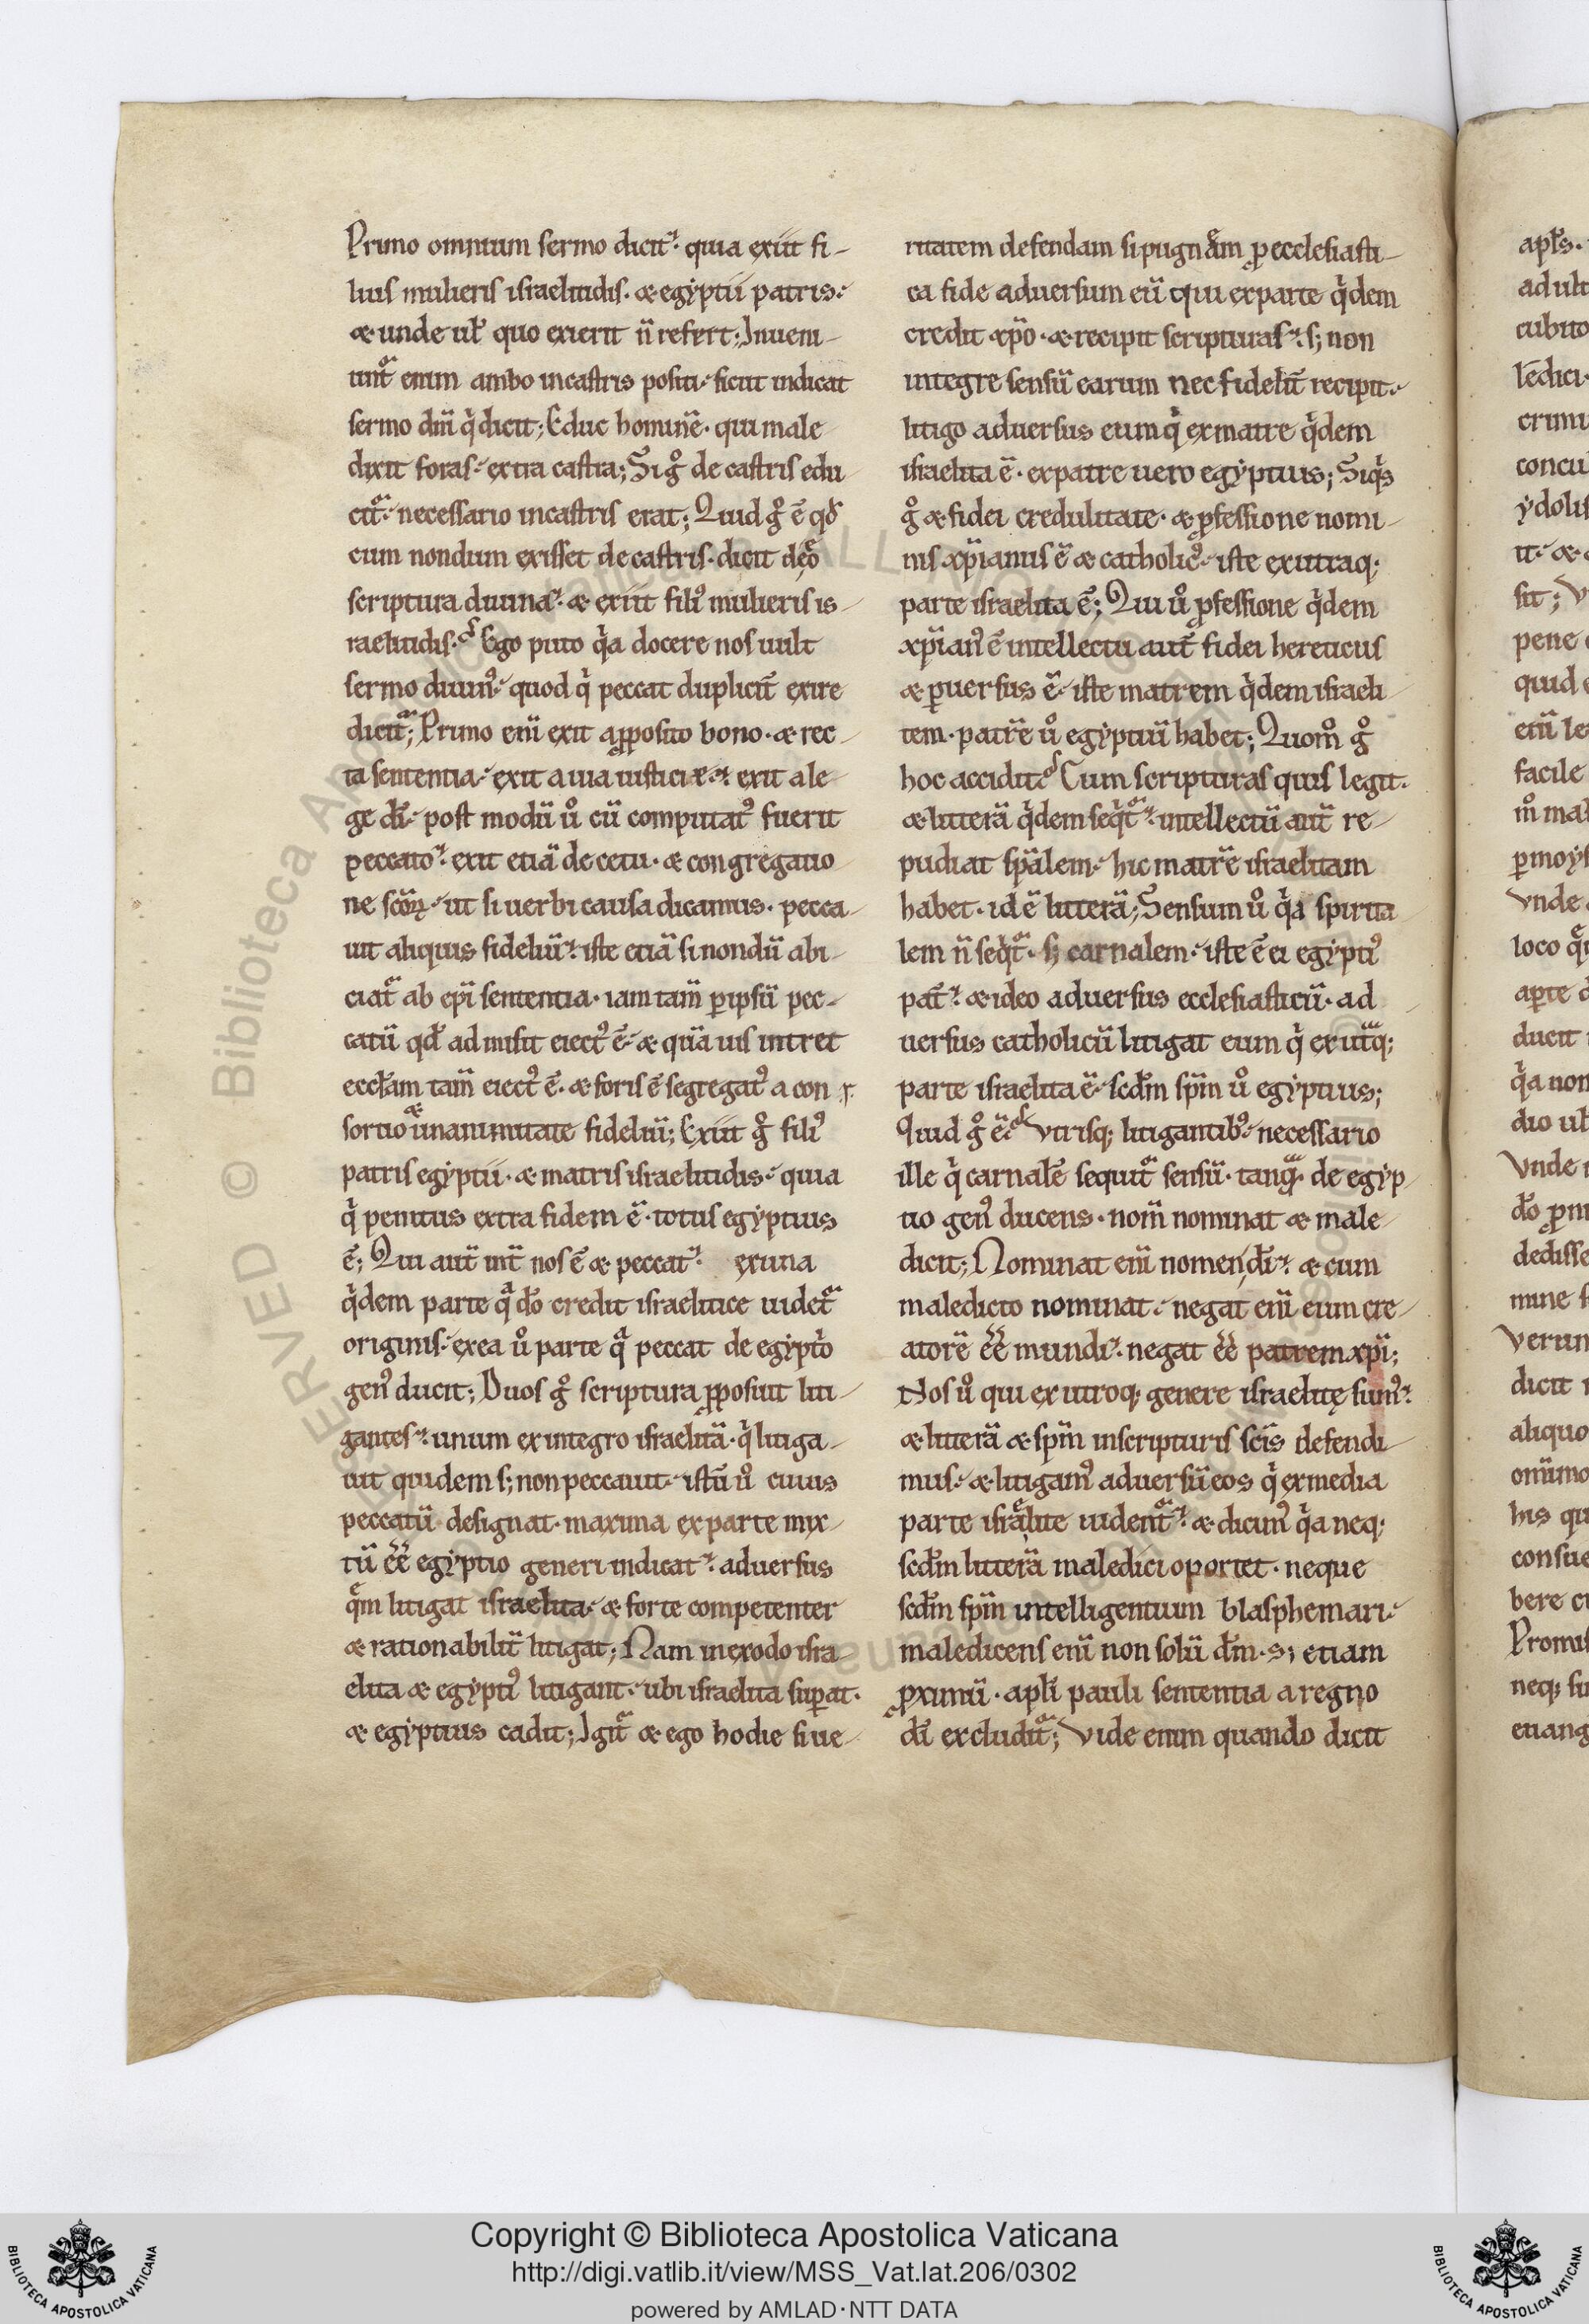 Primo omnium sermo dicit. quia exiit fi-
lius mulieris israelitidis. & egyptii patris.
& unde ul' quo exierit n̄ refert; Inueni-
unt᷑ enim ambo in castris positi. sicut indicat
sermo dn̄i q̍ dicit; Educ hominē. qui male
dixit foras. extra castra; Si gͦ de castris edu
cit᷑. necessario in castris erat; Quid gͦ ē qđ
cum nondum exisset de castris. dicit de eo
scriptura diuina. & exiit fili᷒ mulieris is-
raelitidis. Ego puto q̍a docere nos uult
sermo diuin᷒. quod q̍ peccat duplicit̄ exire
dicit᷑; Primo enī exit a ꝓposito bono. & rec-
ta sententia. exit a uia iusticiæ. exit a le-
ge dī. post modū ů cū computat᷒ fuerit
peccato. exit etiā de cetu. & congregatio-
ne scōꝝ. ut si uerbi causa dicamus. pecca-
uit aliquis fideliū. iste etiā si nondū abi-
ciat᷑ ab epī sententia. iam tam̄ ꝑ ipsū pec-
catū qđ admisit eiect᷒ ē. & quāuis intret
ecclam tam̄ eiect᷒ ē. & foris ē segregat᷒ a con-
sortio & unanimitate fideliū; Exiit gͦ fili᷒
patris egyptii. & matris israelitidis. quia
q̍ penitus extra fidem ē. totus egyptius
ē; Qui aut̄ int̄ nos ē & peccat. ex una
q̍dem parte qᷓ dō credit israelitice uidet᷑
originis. ex ea ů parte qᷓ peccat de egypto
gen᷒ ducit; Duos gͦ scriptura ꝓposuit liti-
gantes. unum ex integro israelitā. q̍ litiga-
uit quidem s; non peccauit. istū ů cuius
peccatū designat. maxima ex parte mix-
tū ēē egyptio generi indicat. aduersus
quē litigat israelita. & forte competenter
& rationabilit̄ litigat; Nam in exodo isra-
elita & egypti᷒ litigant. ubi israelita suꝑat.
& egyptius cadit; Igit᷑ & ego hodie si ue-
ritatem defendam si pugnam ꝓ ecclesiasti-
ca fide aduersum eū qui ex parte q̍dem
credit xp̄o. & recipit scripturas. s; non
integre sensū earum nec fidelit̄ recipit.
litigo aduersus eum q̍ ex matre q̍dem
israelita ē. ex patre uero egyptius; Siq̍s
gͦ & fidei credulitate. & ꝓfessione nomi-
nis xp̄ianus ē & catholic᷒. iste ex utraq;
parte israelita ē; Qui ů ꝓfessione q̍dem
xp̄ian᷒ ē intellectu aut̄ fidei hereticus
& ꝑuersus ē. iste matrem q̍dem israeli-
tem. patrē ů egyptiū habet; Quom̊ gͦ
hoc accidit. Cum scripturas quis legit.
& litterā q̍dem seq̍t᷑. intellectū aut̄ re-
pudiat spālem. hic matrē israelitam
habet. id ē litterā; Sensum ů q̍a spirita
lem n̄ seq̍t᷑. s; carnalem. iste ē ei egypti᷒
pat̄. & ideo aduersus ecclesiasticū. ad
uersus catholicū litigat eum q̍ ex utᷓq;
parte israelita ē. scđm sp̄m ů egyptius;
Quid gͦ ē. Vtrisq; litigantib᷒. necessario
ille q̍ carnalē sequit᷑ sensū. tanqᷓ. de egyp-
tio gen᷒ ducens. nom̄ nominat & male-
dicit; Nominat enī nomen dī. & cum
maledicto nominat. negat enī eum cre-
atorē ēē mundi. negat ēē patrem xp̄i;
Nos ů qui ex utroq; genere israelitę sum᷒.
& litterā & sp̄m in scripturis scīs defendi-
mus. & litigam᷒ aduersū eos q̍ ex media
parte israelite uident᷑. & dicim᷒ q̍a neq;
scđm litterā maledici oportet. neque
scđm sp̄m intelligentium blasphemari.
maledicens enī non solū dm̄. s; etiam
ꝓximū. apl̄i pauli sententia a regno
dī excludit᷑; Vide enim quando dicit
Copyright © Biblioteca Apostolica Vaticana
http://digi.vatlib.it/view/MSS_Vat.lat.206/0302
powered by AMLAD·NTT DATA
BIBLIOTECA APOSTOLICA VATICANA
BIBLIOTECA APOSTOLICA VATICANA